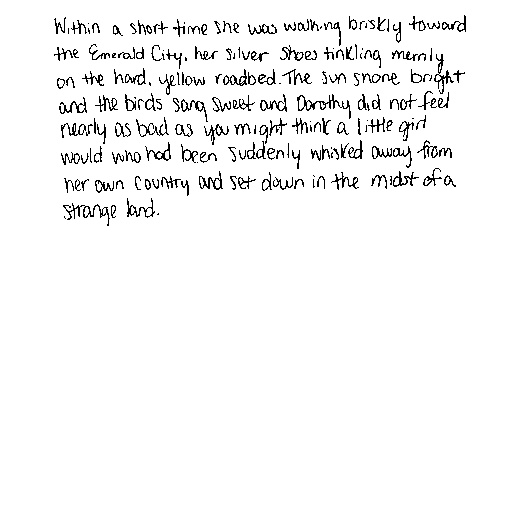 Within a short time she was walking briskly toward
the Emerald City, her Silver Shoes tinkling merrily
on the hard, yellow roadbed. The sun shone bright
and the birds sang sweet and Dorothy did not feel
nearly as bad as you might think a little girl
would who had been suddenly whisked away from
her own country and set down in the midst of a
strange land.